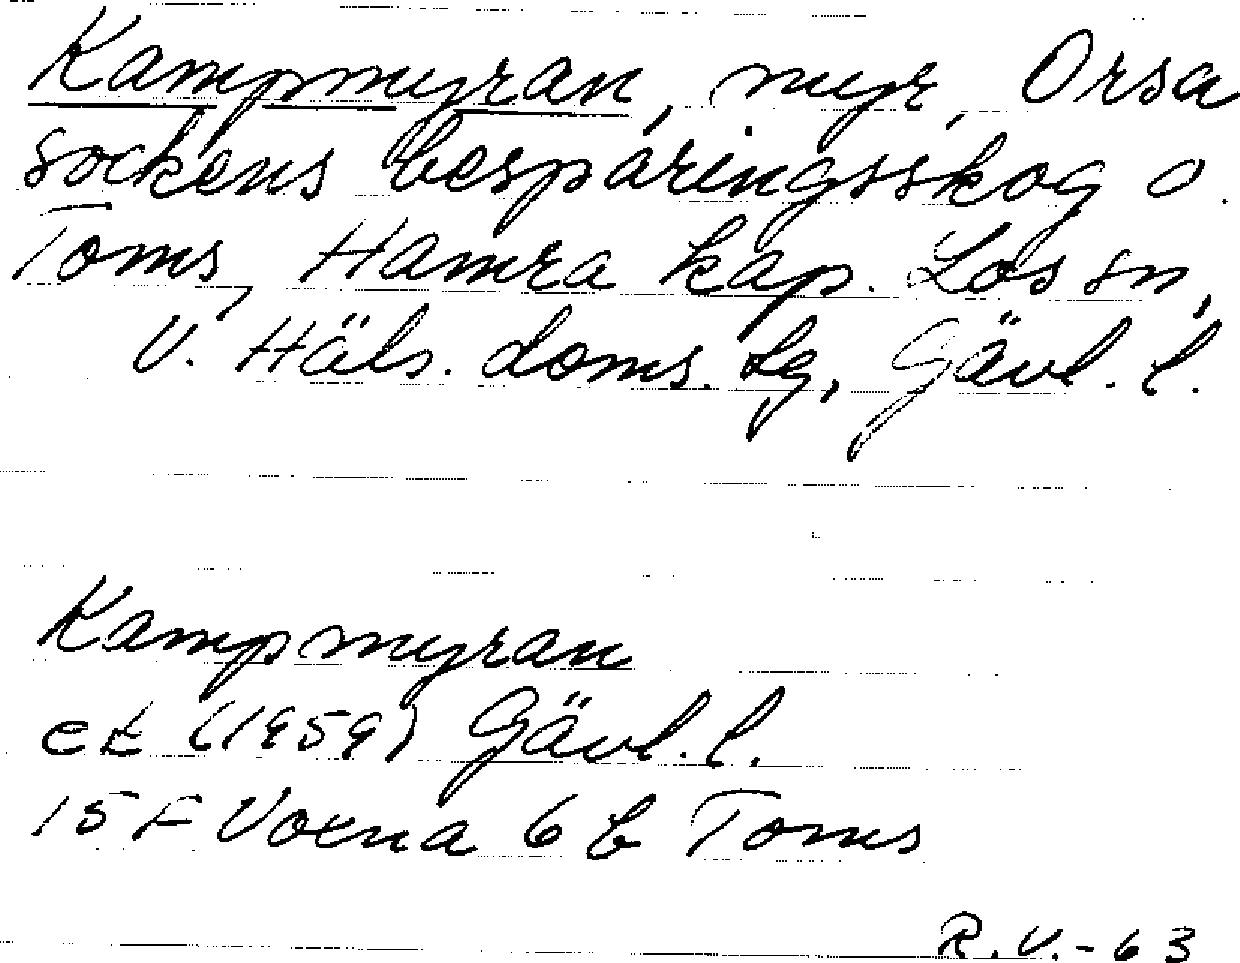 Kampmyran, myr, Orsa
sockens besparingsskog o.
Toms, Hamra kap. Los sn,
V. Häls. doms. Lg, Gävl. l.
Kampmyran
ek (1959) Gävl. l.
15 F Voxna 6 b Toms
R.V.-63